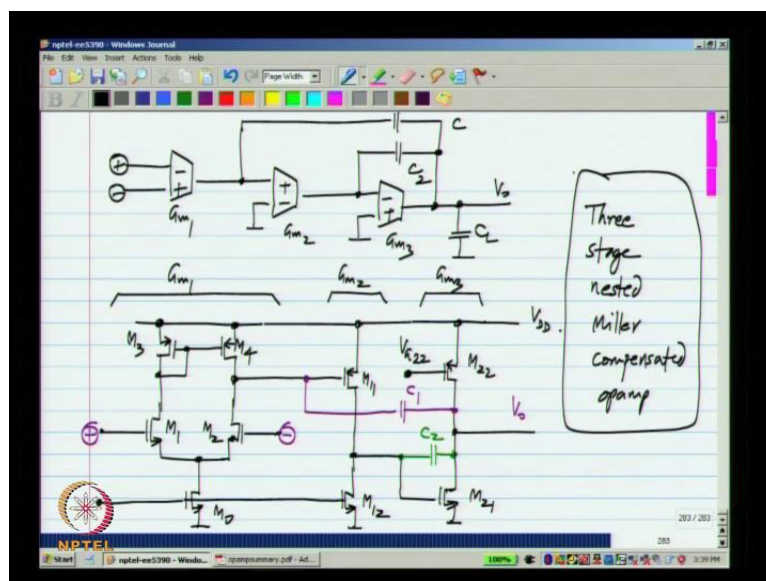 nptel-ee5390 - Windows Journal
File Edit View Insert Actions Tools Help
Page Width
C
C2
Gm1
Gm2
Gm3
Vo
CL
Three
stage
nested
Miller
compensated
opamp
Gm1
Gm2
Gm3
VDD.
M3
M4
M11
VG22
M22
C1
Vo
M1
M2
C2
M0
M12
M21
NPTEL
283 / 283
283
Start
nptel-ee5390 - Windo...
opampsummary.pdf - Ad...
100%
3:39 PM